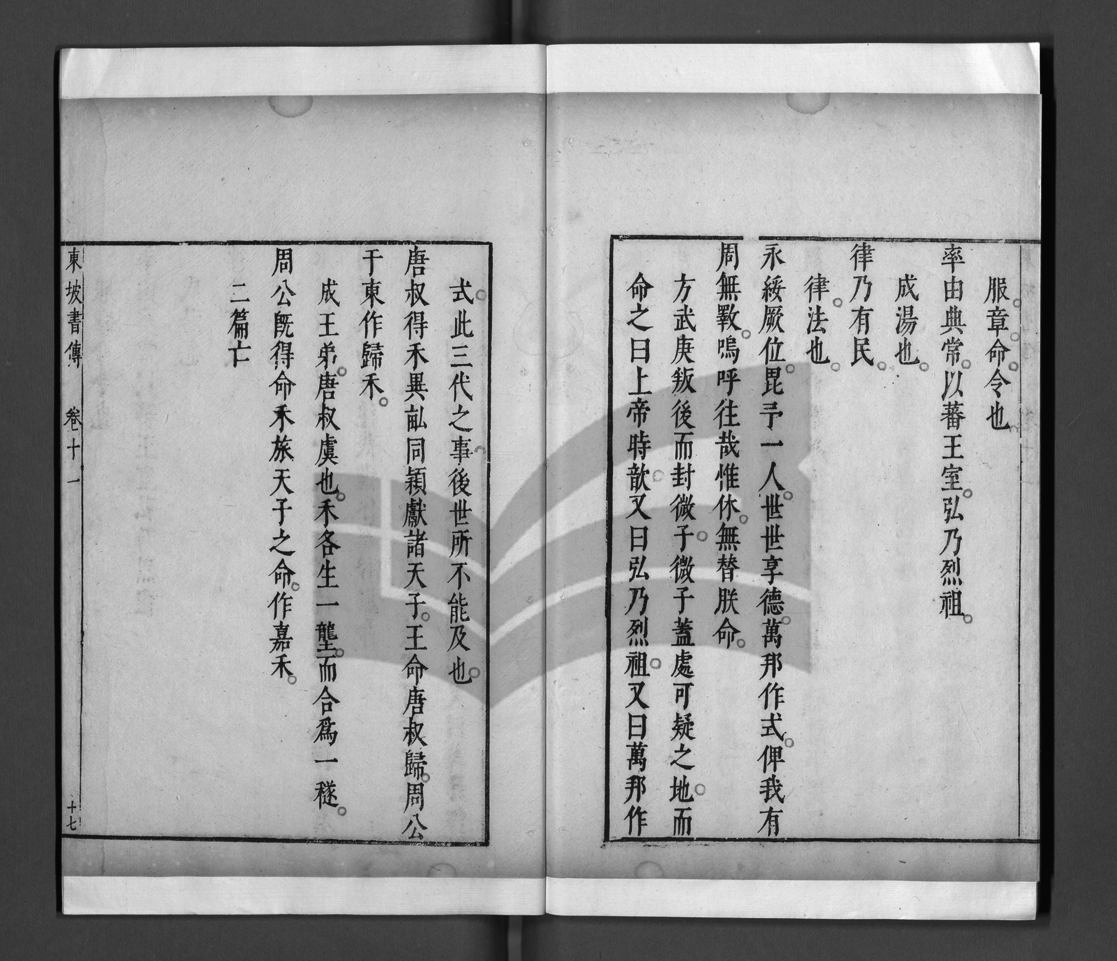 服章。命。令也
率由典常。以蕃王室。弘乃烈祖。
成湯也。
律乃有民。
律。法也。
永綏厥位。毘予一人。世世享德。萬邦作式。俾我有
周無斁。嗚呼往哉惟休。無替朕命。
方武庚叛後而封微子。微子蓋處可疑之地。而
命之曰上帝時歆。又曰弘乃烈祖。又曰萬邦作
式。此三代之事。後世所不能及也。
唐叔得禾異畝同穎獻諸天子。王命唐叔歸。周公
于東作歸禾。
成王弟。唐叔虞也。禾各生一壟。而合爲一穟。
周公旣得命禾旅天子之命。作嘉禾。
二篇亡
東坡書傳 卷十一 十七